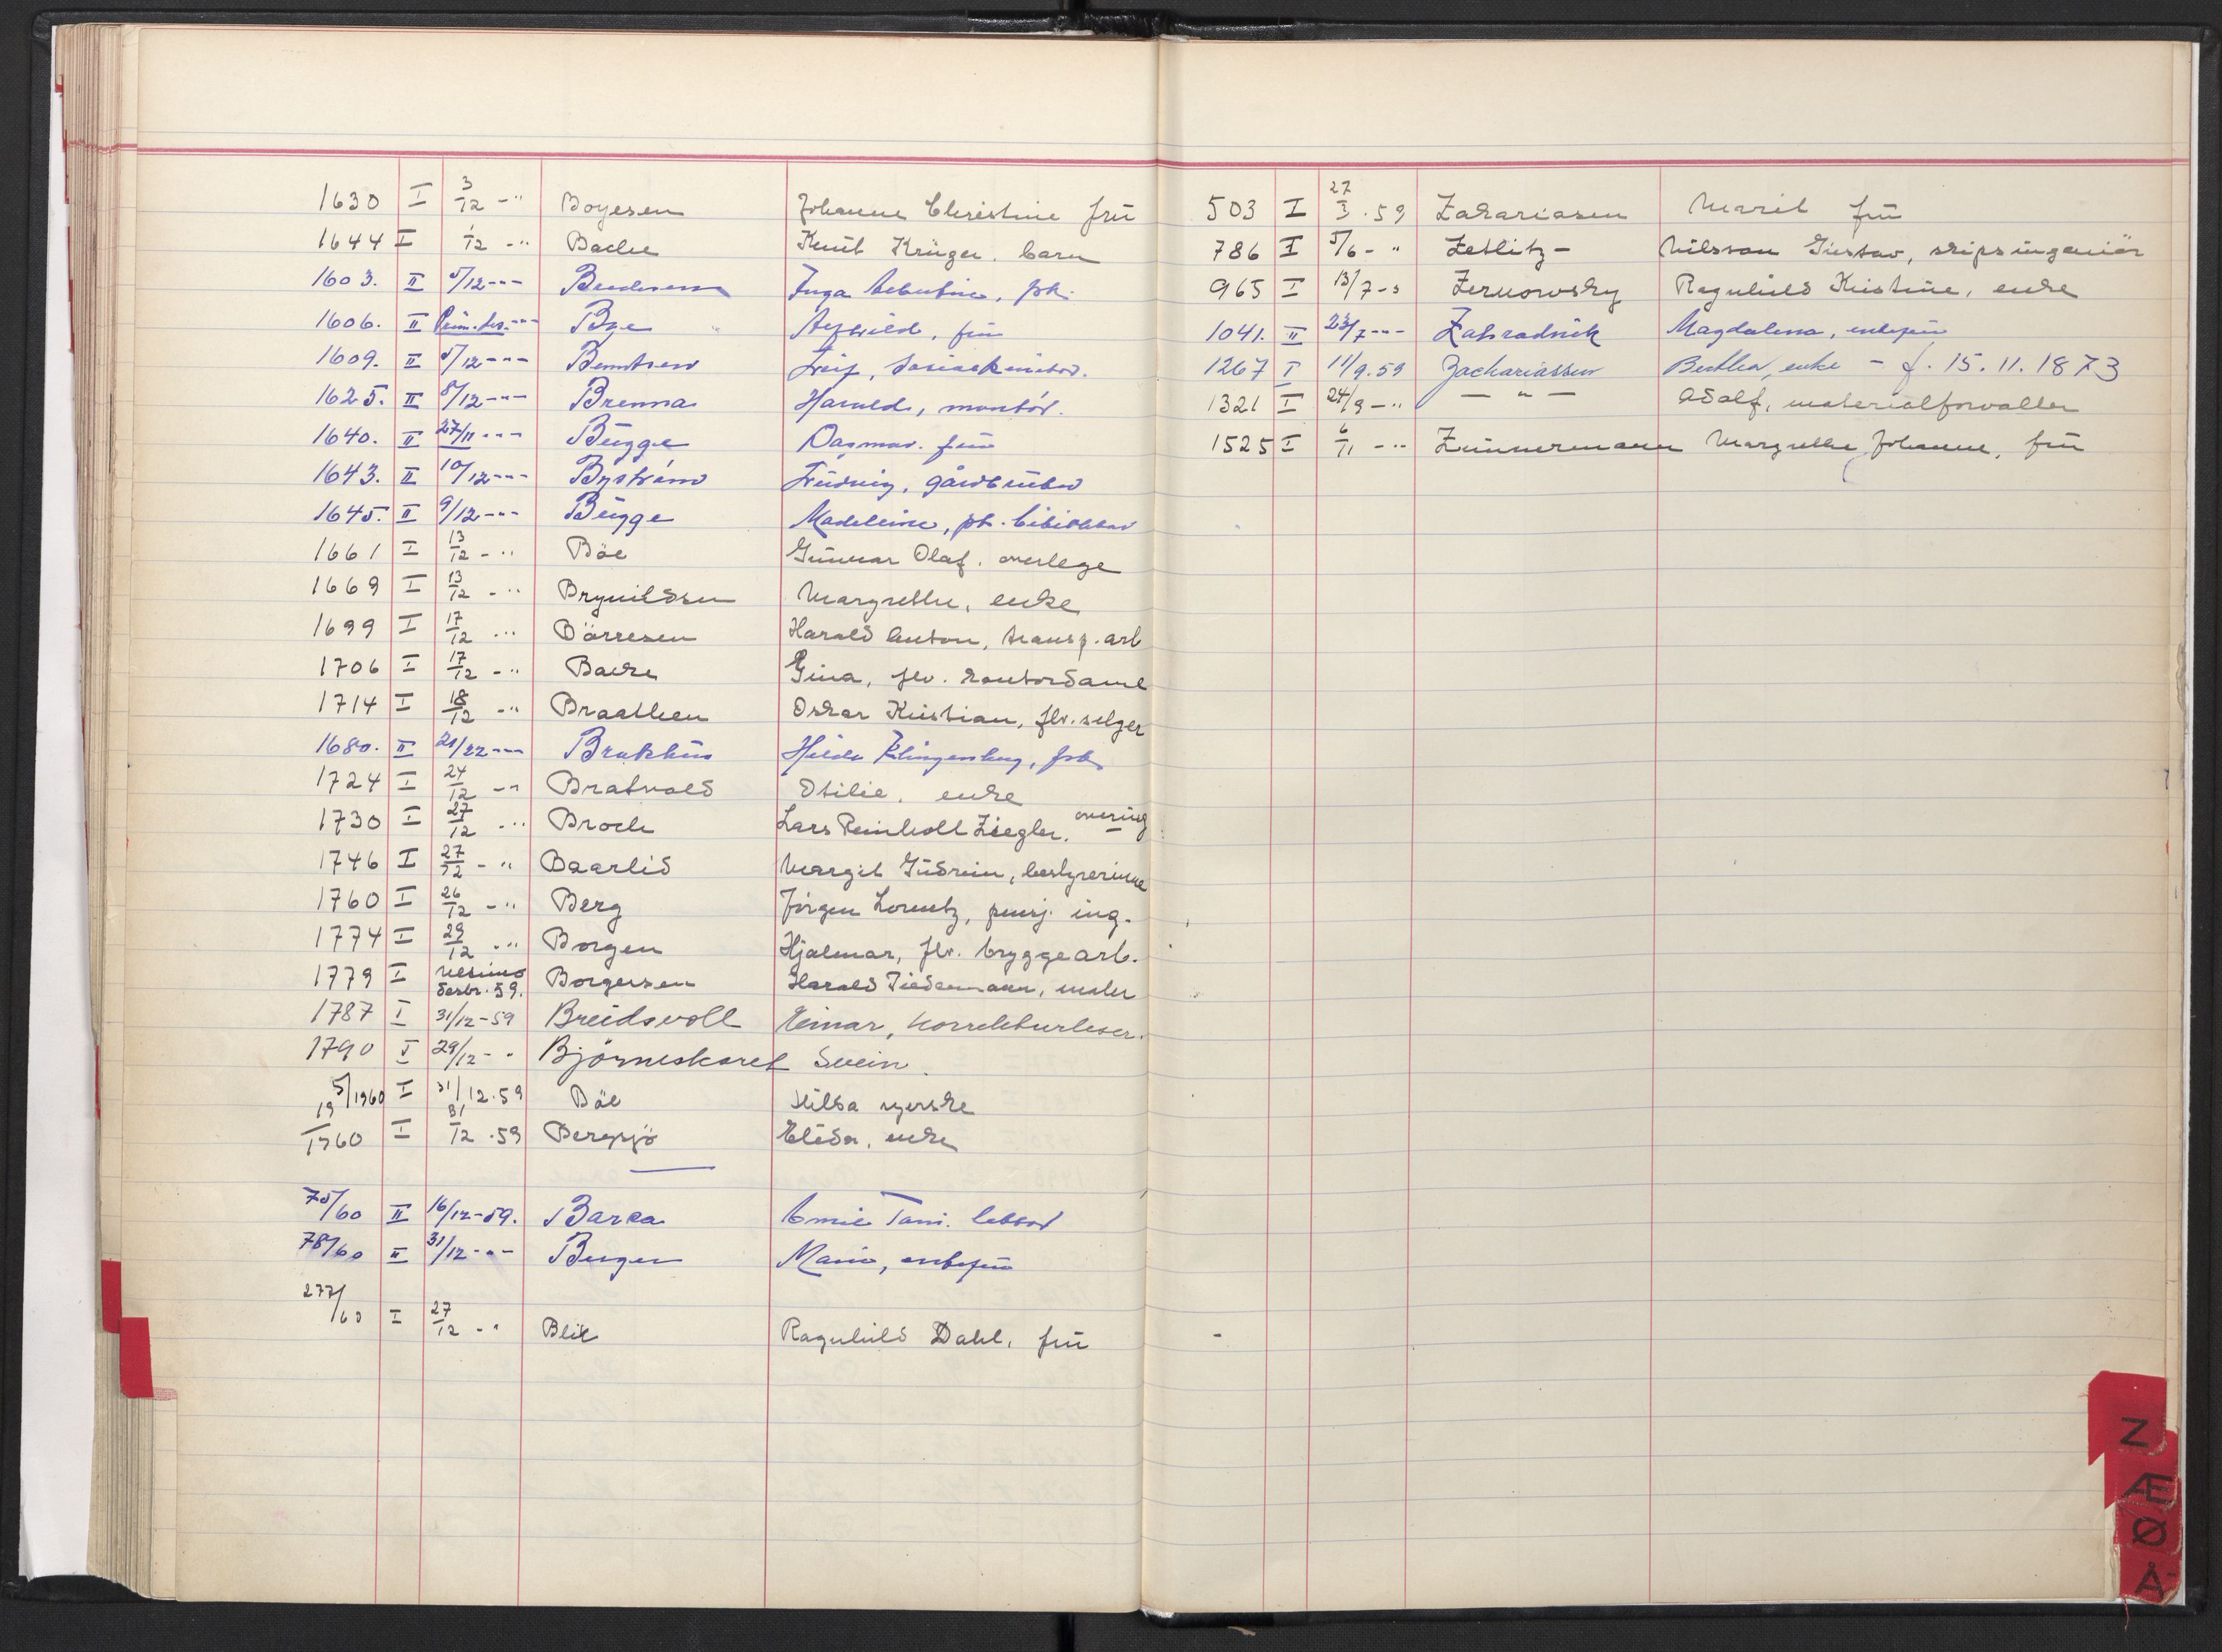 1630 I 3/12 -" Boyesen Johanne Christine frü
1644 I 1/12 -" Bache Knut Krüger. barn
1603. II 5/12 -"- Inga
1606. II Bye frü
1609. II 5/12 -"- Leif,
1625. II 8/12 -"- Brenna Harald, montør.
1640. II 27/11 -"- Bügge Dagmar. frü
1643. II 10/12 -"- Byström Lüdvig, gårdbrüker
1645. II 9/12 -"- Bügge Madeleine, pb. bibliotekar
1661 I 13/12 -" Böe Günnar Olaf. overlege
1669 I 13/12 -" Brynildsen Margrethe, enke
1699 I 17/12 -" Börresen Harald Anton, transp. arb
1706 I 17/12 -" Backe Gina, flv. kontordame
1714 I 18/12 -" Braathen Oskar Kristian, flv. selger
1680. II Brakhüs Hilda Klingenberg, frk.
1724 I 24/12 -" Bratvold Otilie. enke
1730 I 27/12 -" Broch Lars Reinholt Ziegler. overing
1746 I 27/12 -" Baarlid Margit Güdrün, bestyrerinne
1760 I 26/12 -" Berg Jörgen Lorentz, pensj. ing.
1774 I 29/12 -" Borgen Hjalmar, flv. bryggearb.
1779 I desbr. 59. Borgersen Harald Tiedemann, maler
1787 I 31/12-59 Breidsvoll Einar, korrekturleser.
1790 I 29/12 -" Björneskaret Svein.
5/1960 I 31/12.59 Böe Hilda syerske
19/1960 I 31/12 .59 Bergsjö Elida. enke
75/60 II 16/12-59. Barca
78/60 II 31/12 -"- Berger Marie, enkefrü
277/60 I 27/12 -" Blik Ragnhild Dahl. frü
503 I 27/3 .59 Zakariasen Marit frü
786 I 5/6 - " Zetlitz- Nilsson Güstav, skipsingeniör
965 I 13/7 -" Zernowsky Ragnhild Kristine, enke
1041. II 23/7 -"- Zahradnik Magdalena, enkefrü
1267 I 11/9.59 Zachariassen Berthe, enke - f. 15.11.1873
1321 I 24/9 -" — " — Adolf, materialforvalter
1525 I 6/11 -" Zimmermann Margrethe Johanne, frü
Z
Æ
Ø
Å